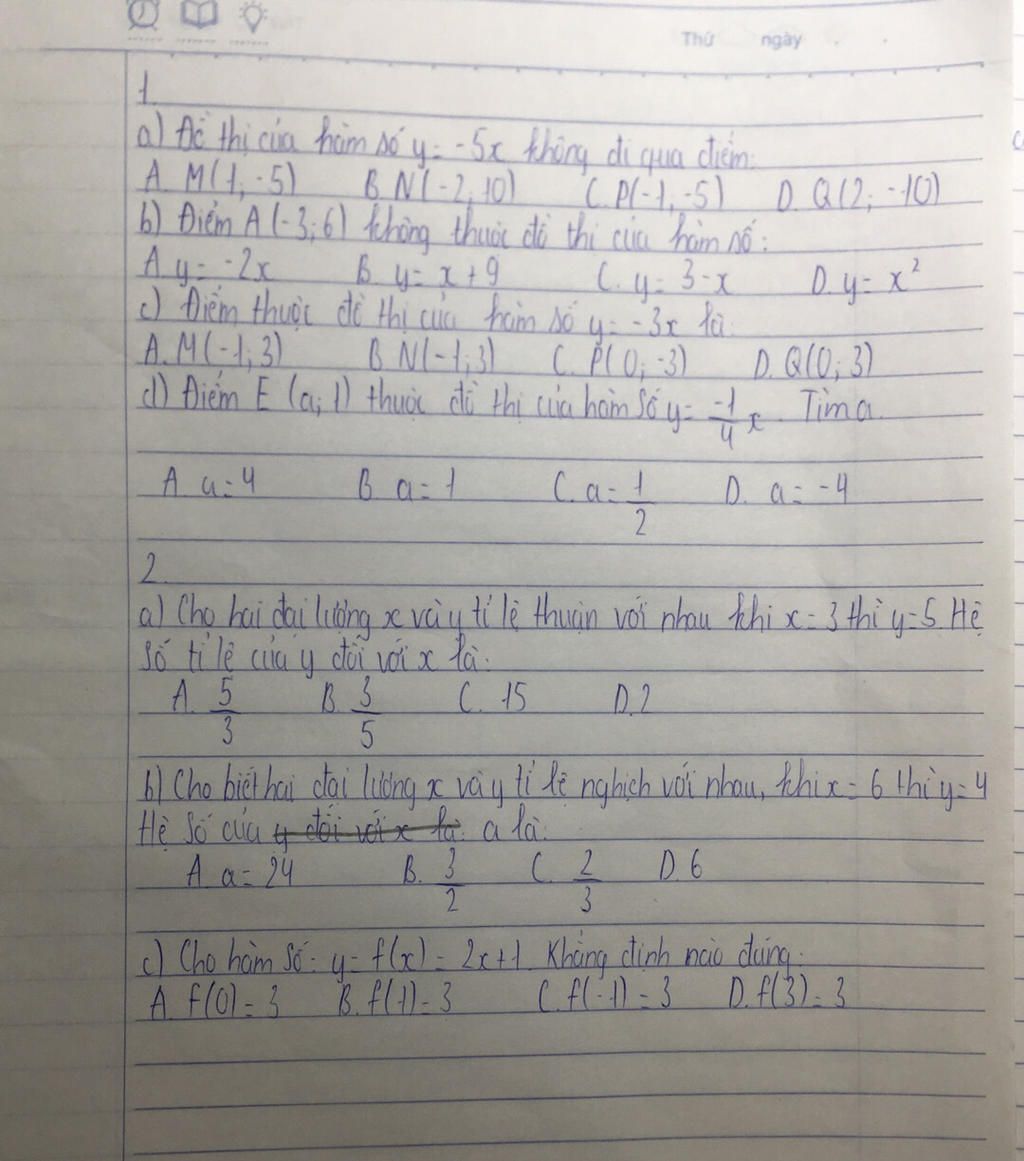 Thứ ngày
1.
a) Đồ thị của hàm số y = -5x không đi qua điểm:
A. M(1; -5) B. N(-2; 10) C. P(-1; -5) D. Q(2; -10)
b) Điểm A(-3; 6) không thuộc đồ thị của hàm số:
A. y = -2x B. y = x + 9 C. y = 3 - x D. y = x²
c) Điểm thuộc đồ thị của hàm số y = -3x là:
A. M(-1; 3) B. N(-1; 3) C. P(0; -3) D. Q(0; 3)
d) Điểm E (a; 1) thuộc đồ thị của hàm số y = -1/4 x. Tìm a.
A. a = 4 B. a = 1 C. a = 1/2 D. a = -4
2.
a) Cho hai đại lượng x và y tỉ lệ thuận với nhau khi x = 3 thì y = 5. Hệ
số tỉ lệ của y đối với x là:
A. 5/3 B. 3/5 C. 15 D. 2
b) Cho biết hai đại lượng x và y tỉ lệ nghịch với nhau, khi x = 6 thì y = 4
Hệ số của y đối với x là: a là:
A. a = 24 B. 3/2 C. 2/3 D. 6
c) Cho hàm số: y = f(x) = 2x + 1. Khẳng định nào đúng:
A. f(0) = 3 B. f(1) = 3 C. f(-1) = 3 D. f(3) = 3